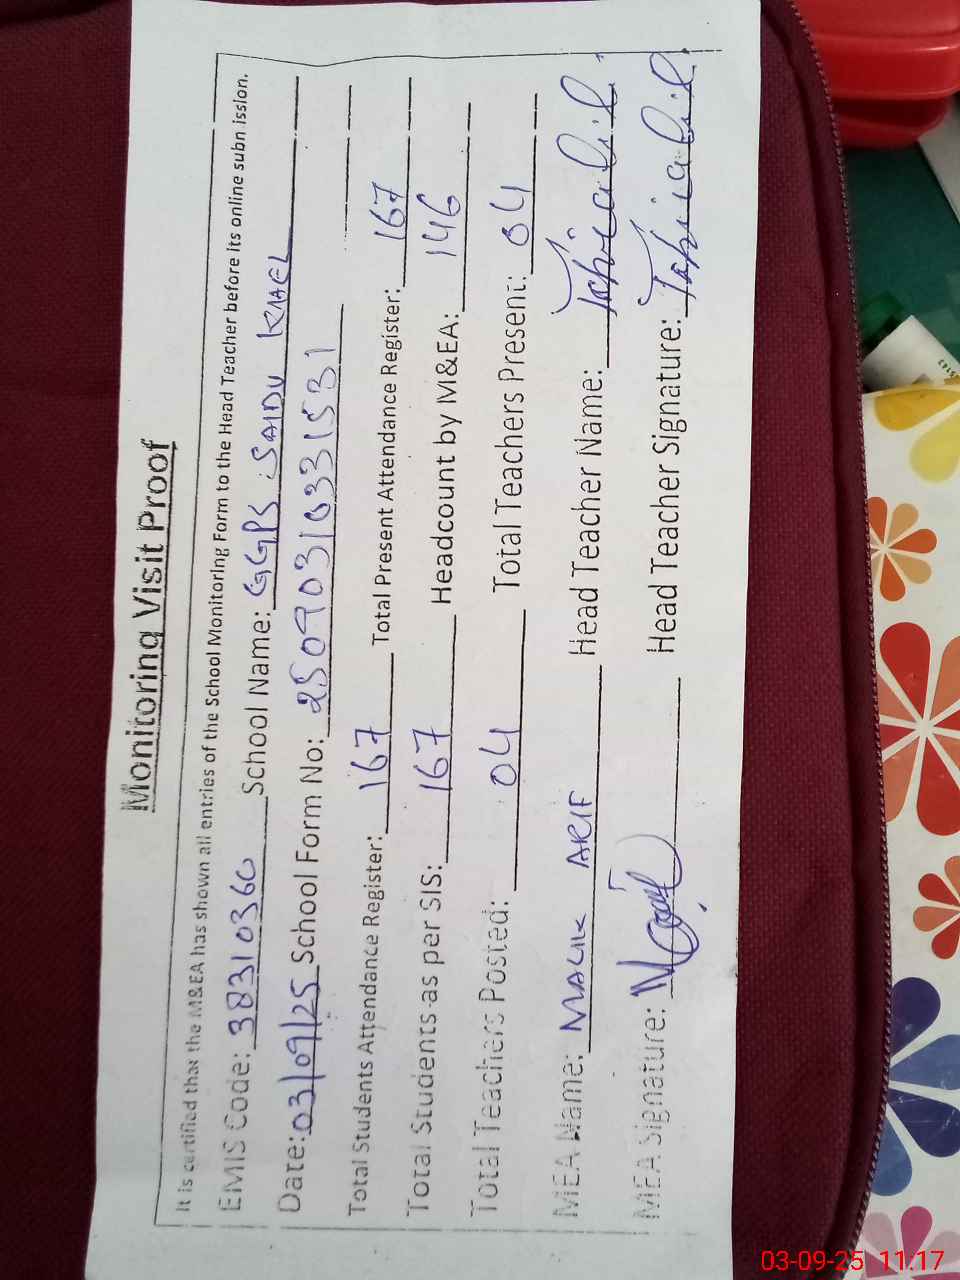 Monitoring Visit Proof
It is certified that the M&EA has shown all entries of the School Monitoring Form to the Head Teacher before its online subn ission.
EMIS Code: 38310360 School Name: GGPS SAIDU KHAEL
Date: 03/09/25 School Form No: 25090310331531
Total Students Attendance Register: 167 Total Present Attendance Register: 167
Total Students as per SIS: 167 Headcount by M&EA: 146
Total Teachers Posted: 04 Total Teachers Present: 04
MEA Name: MALIK ARIF Head Teacher Name:
MEA Signature: Head Teacher Signature:
03-09-25 11:17